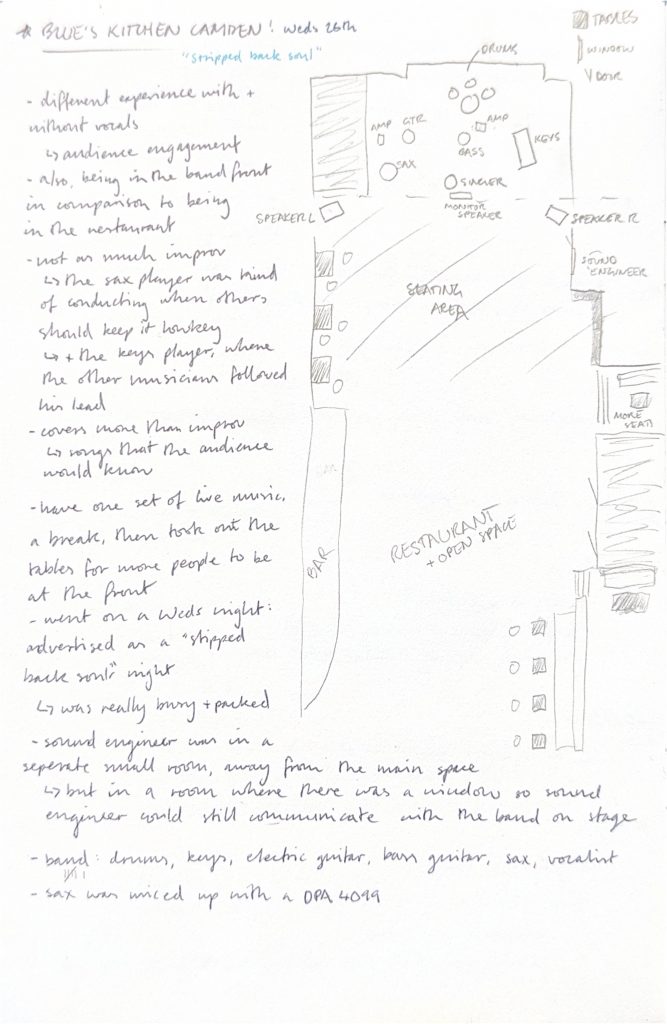 * BLUE'S KITCHEN CAMDEN! Weds 26th
"stripped back soul"
TABLES
WINDOW
DOOR
- different experience with +
without vocals
↳ audience engagement
- also, being in the band front
in comparison to being
in the restaurant
- not as much improv
↳ the sax player was kind
of conducting when others
should keep it lowkey
↳ + the keys player, where
the other musicians followed
his lead
- covers more than improv
↳ songs that the audience
would know
- have one set of live music,
a break, then took out the
tables for more people to be
at the front
- went on a Weds night:
advertised as a "stipped
back soul" night
↳ was really busy + packed
- sound engineer was in a
seperate small room, away from the main space
↳ but in a room where there was a window so sound
engineer could still communicate with the band on stage
- band: drums, keys, electric guitar, bass guitar, sax, vocalist
- sax was miced up with a DPA 4099
DRUMS
AMP
GTR
AMP
BASS
KEYS
SAX
SINGER
MONITOR
SPEAKER
SPEAKER L
SPEAKER R
SOUND
ENGINEER
SEATING
AREA
MORE
SEATS
BAR
RESTAURANT
+ OPEN SPACE